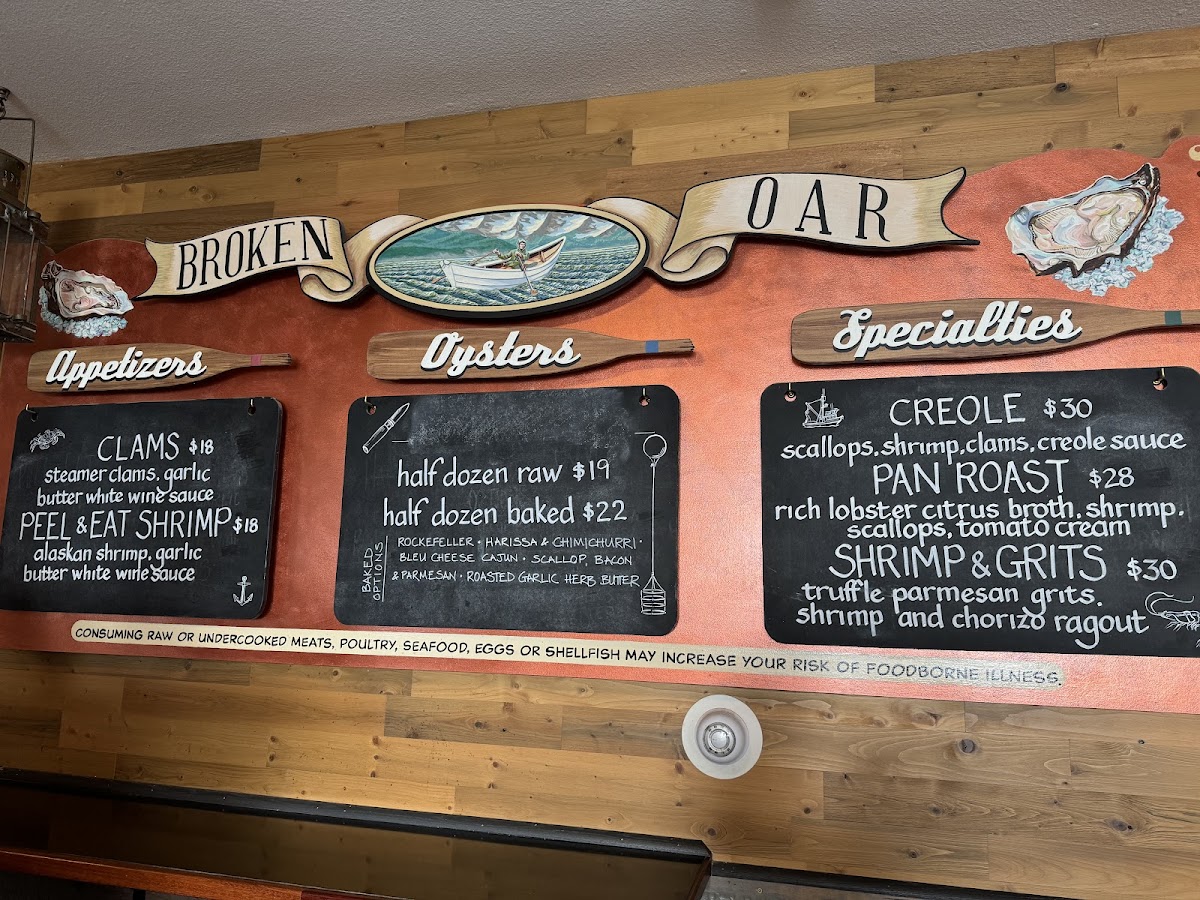 BROKEN OAR
Appetizers
CLAMS $18
steamer clams, garlic
butter white wine sauce
PEEL & EAT SHRIMP $18
alaskan shrimp, garlic
butter white wine sauce
Oysters
half dozen raw $19
half dozen baked $22
BAKED
OPTIONS
ROCKEFELLER • HARISSA & CHIMICHURRI •
BLEU CHEESE CAJUN • SCALLOP, BACON
& PARMESAN • ROASTED GARLIC HERB BUTTER
Specialties
CREOLE $30
scallops, shrimp, clams, creole sauce
PAN ROAST $28
rich lobster citrus broth, shrimp,
scallops, tomato cream
SHRIMP & GRITS $30
truffle parmesan grits,
shrimp and chorizo ragout
CONSUMING RAW OR UNDERCOOKED MEATS, POULTRY, SEAFOOD, EGGS OR SHELLFISH MAY INCREASE YOUR RISK OF FOODBORNE ILLNESS.